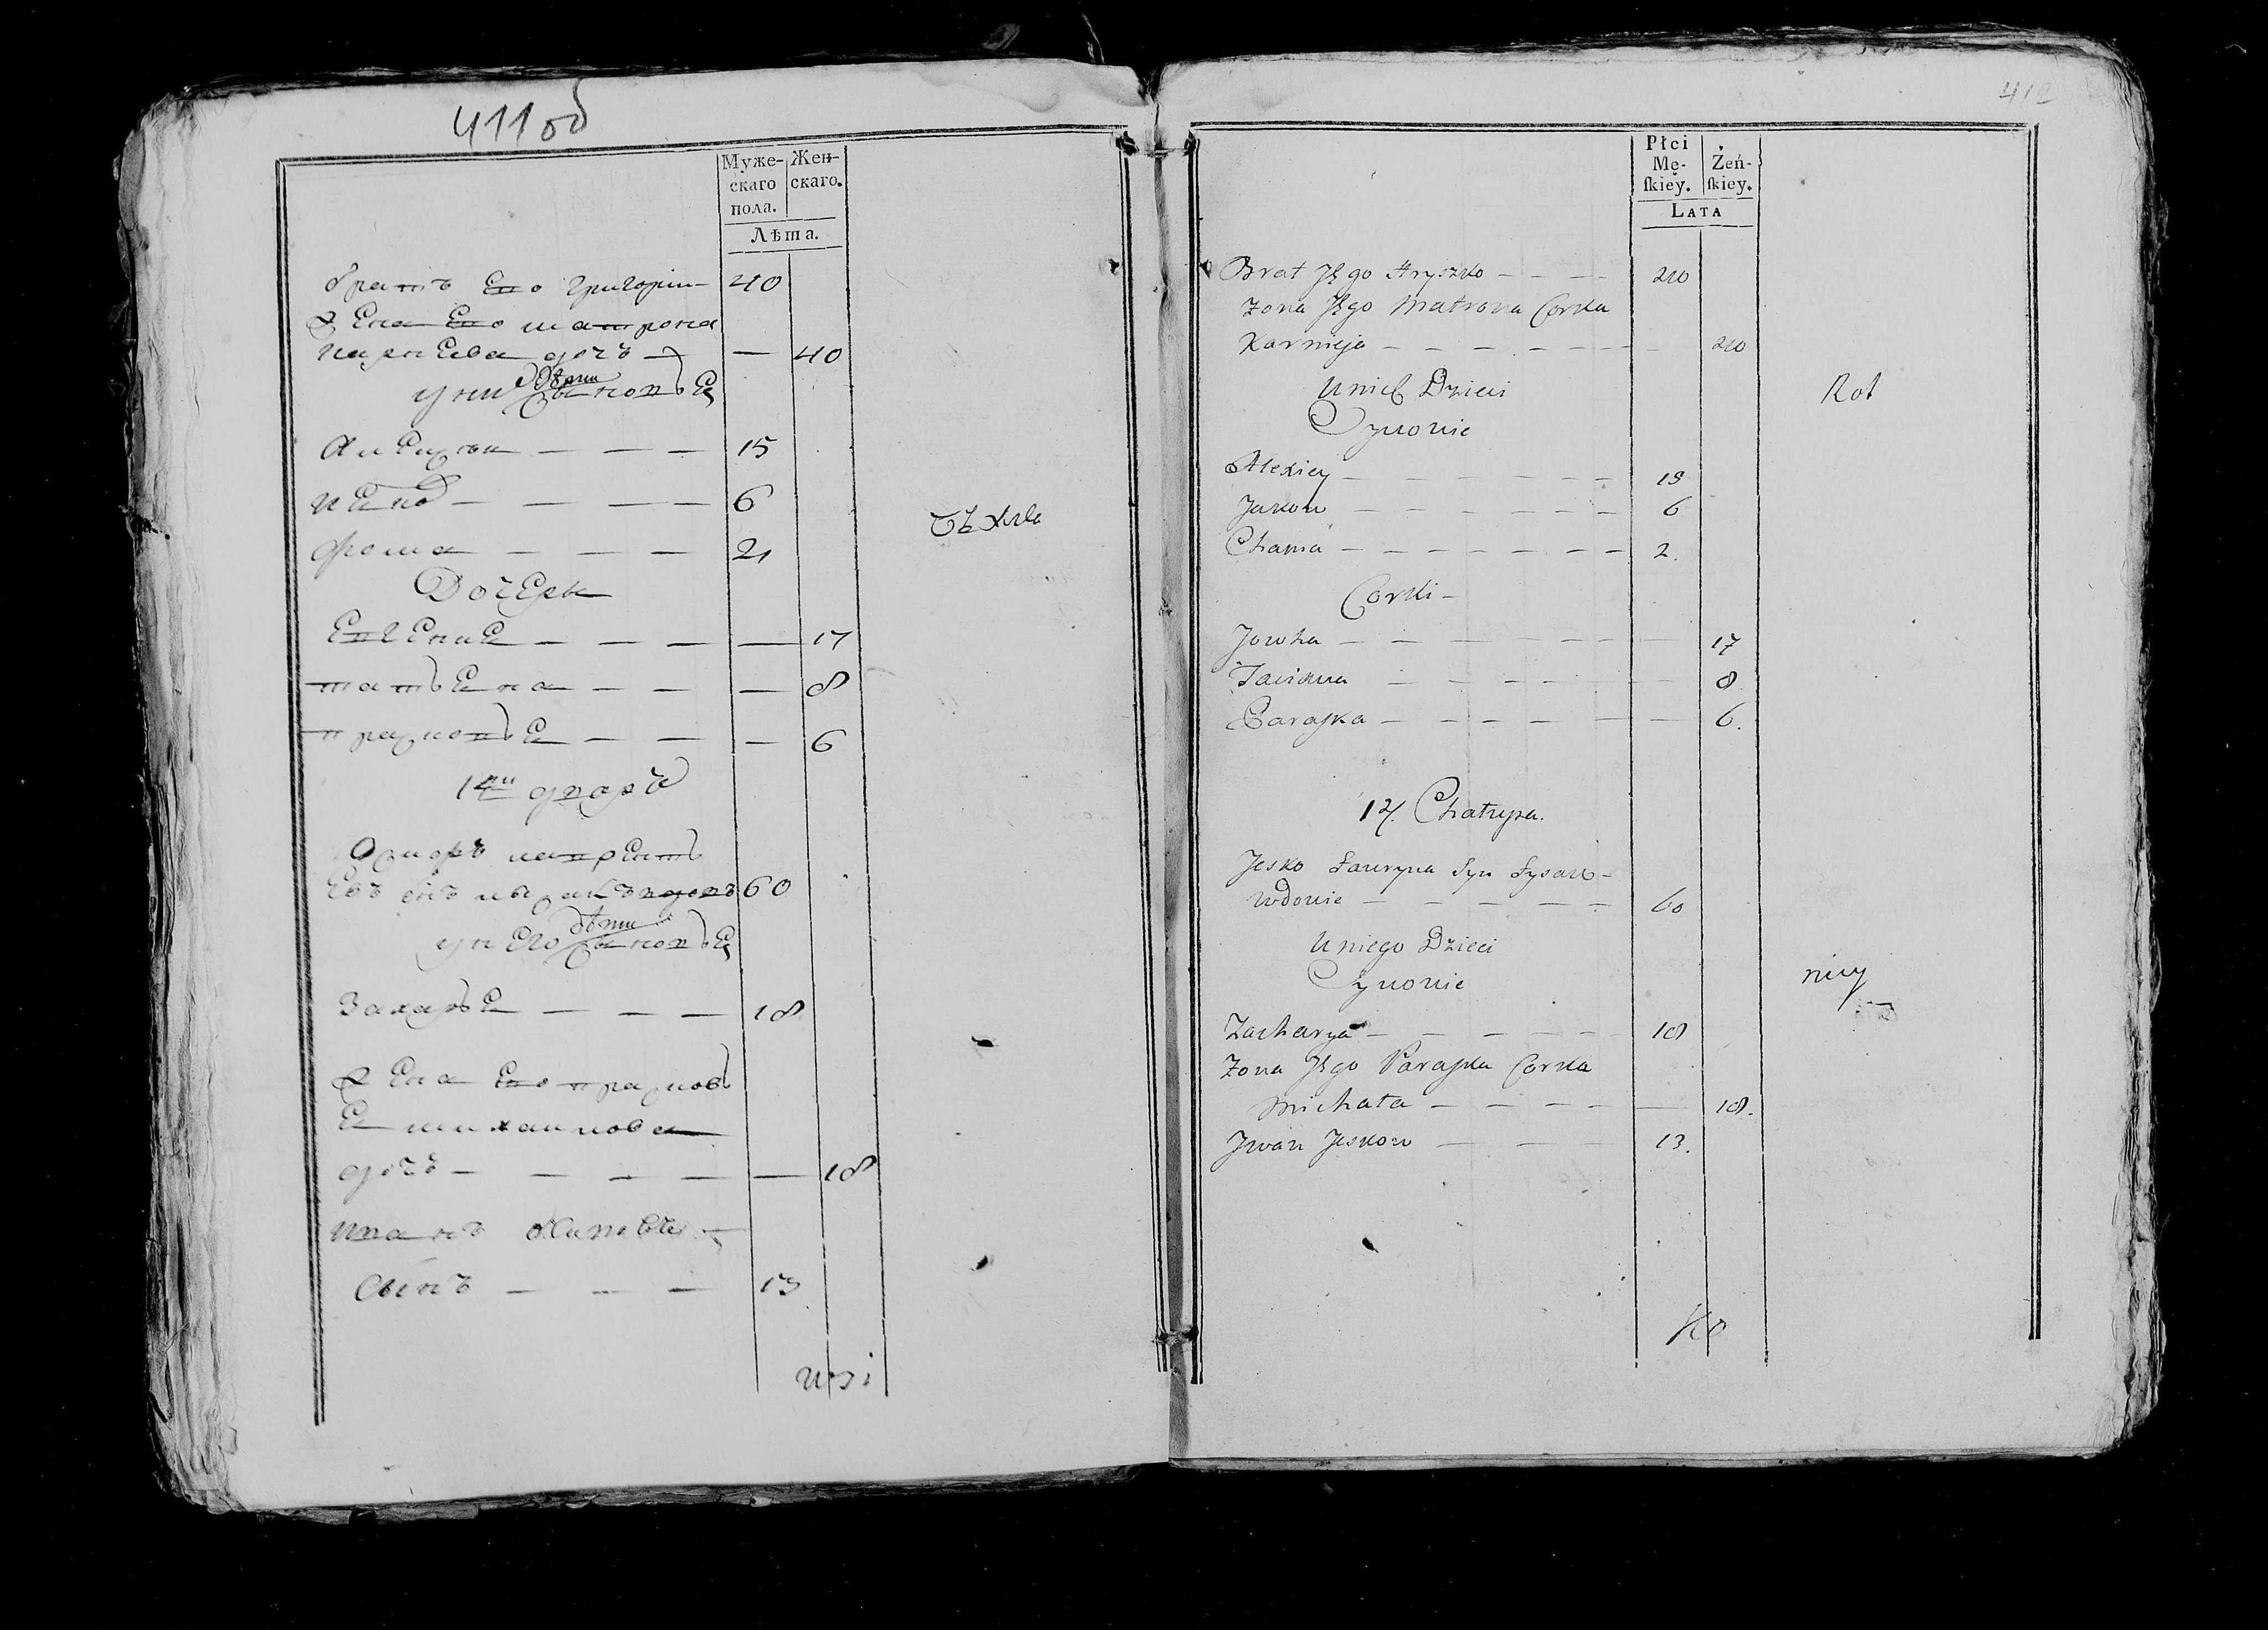 411об
Муже-
скаго
пола.
Жен-
скаго.
Лѣта.
братъ Его григории — 40
жена Его матрона
карнеева дочь — — 40
у них дѣти
сыновѣя
Алексѣи — — — 15
иков — — — — 6
фома — — — 2
Дочери
Евгения — — — — 17
татьяна — — — 8
прасковья — — — 6
14й дворъ
лаврентѣ
евъ сынъ вдовъ 60
у него дѣти
сыновья
Захарья — — — 18
жена Его прасковь
я михаилова
дочь — — — — — 18
иванъ
сынъ — — — 13
wsi
412
Płci
Mę-
ſkiey.
Żeń-
ſkiey.
LATA
Brat Jego Hryszko — — — — 40
Zona Jego Matrona Corka
Karnieja — — — — — — — 40
Unich Dzieci
Synowie
Rot
Alexiey — — — — — — 15
Jakow — — — — — — 6
Choma — — — — — — — 2.
Corki —
Jowha — — — — — — 17
Taciana — — — — — — 8
Paraska — — — — — — 6.
14. Chatupa.
Jesko Ławryna Syn Łysau-
wdowie — — — — — — 60
Uniego Dzieci
Synowie
niey
Zacharya — — — — — — 18
Zona Jego Paraska Corka
Michała — — — — — 18.
Jwan Jeskow — — — 13.